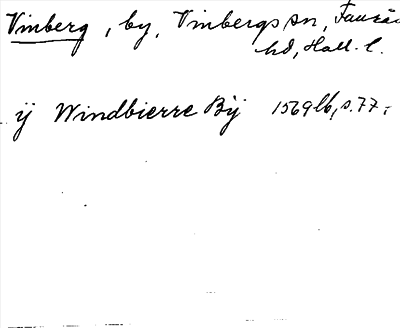 Vinberg, by, Vinbergs sn, Faurås
hd, Hall. l.
ij Windbierre Bij 1569 lb, s. 77.